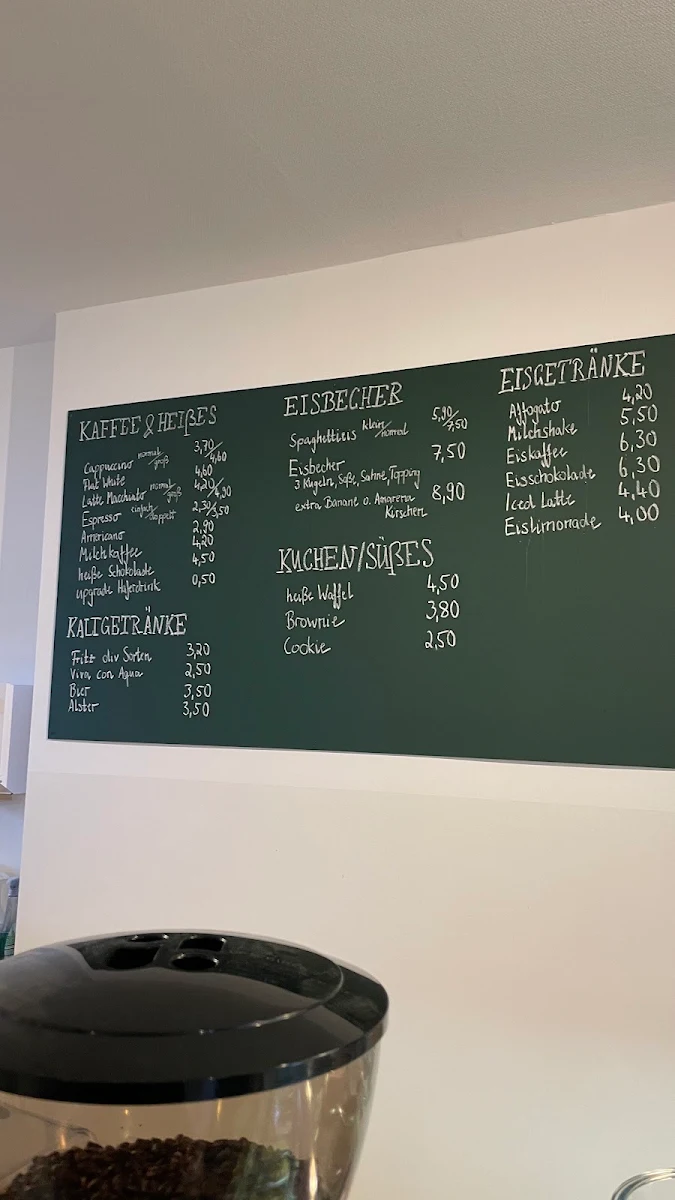 KAFFEE & HEIßES
Cappuccino normal/groß 3,70/4,60
Flat White 4,60
Latte Macchiato normal/groß 4,20/4,90
Espresso einfach/doppelt 2,30/3,50
Americano 2,90
Milchkaffee 4,20
heiße Schokolade 4,50
upgrade Haferdrink 0,50
KALTGETRÄNKE
Fritz div Sorten 3,20
Viva con Agua 2,50
Bier 3,50
Alster 3,50
EISBECHER
Spaghettieis klein/normal 5,90/7,50
Eisbecher 7,50
3 Kugeln, Soße, Sahne, Topping
extra Banane o. Amarena 8,90
Kirschen
KUCHEN/SÜßES
heiße Waffel 4,50
Brownie 3,80
Cookie 2,50
EISGETRÄNKE
Affogato 4,20
Milchshake 5,50
Eiskaffee 6,30
Eisschokolade 6,30
Iced Latte 4,40
Eislimonade 4,00